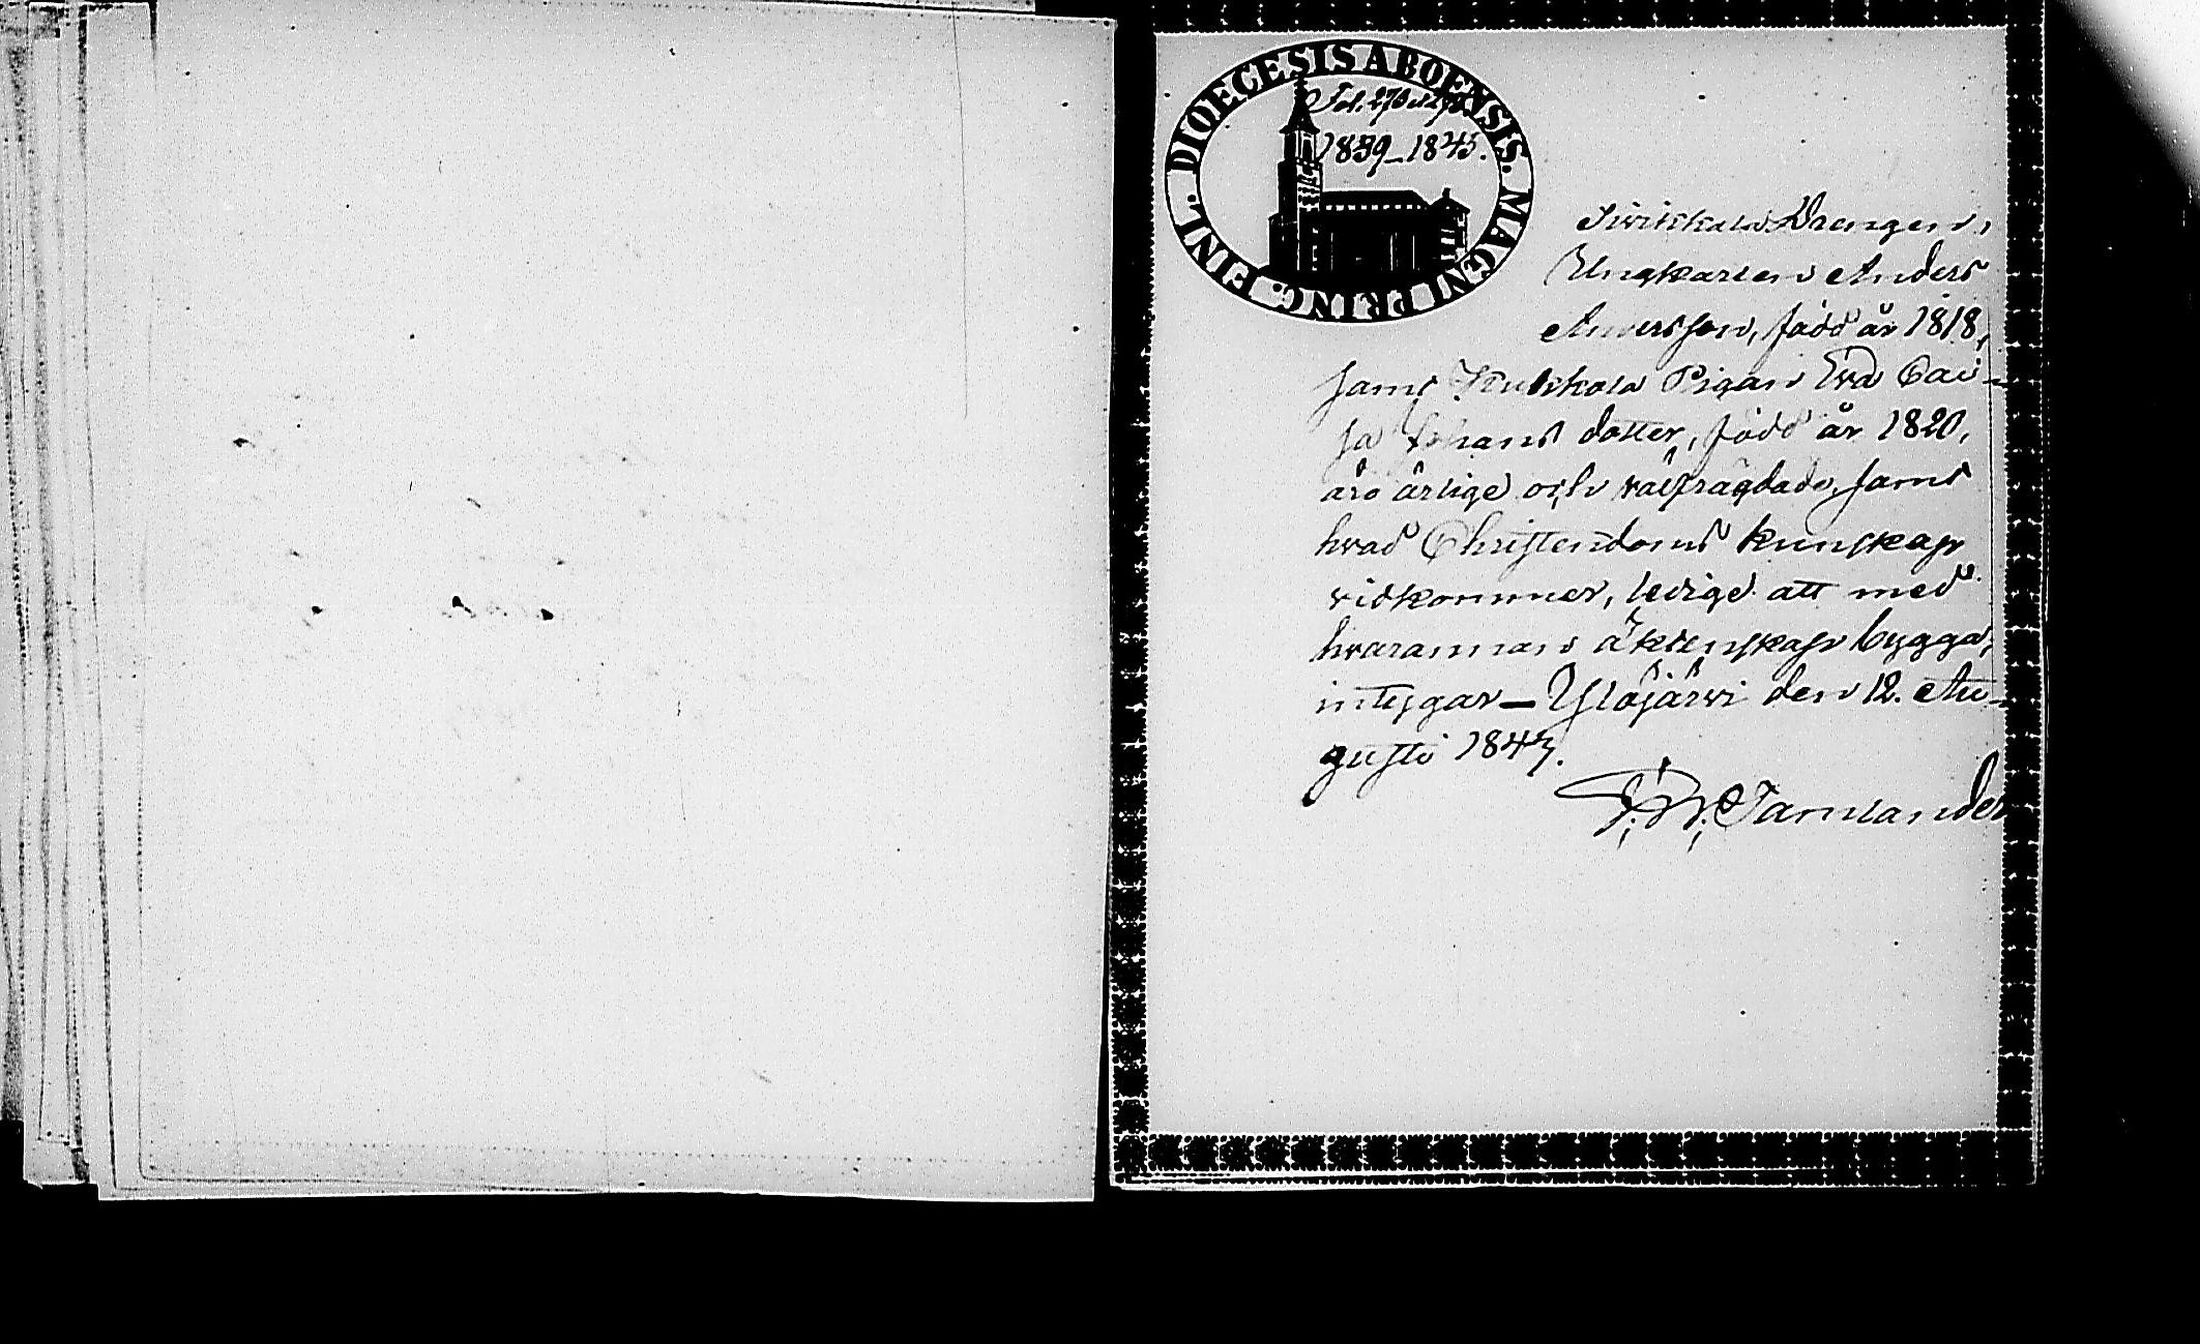 DIOECESIS ABOENSIS. MAGNI PRINC. FINL.
Fol. 276
1839–1845.
Siwickala Drengen,
Ungkarlen Anders
Andersson, född år 1818,
samt Pigan Eva Cai-
sa Johans dotter, född år 1820,
äro ärlige och välfrägdade, samt
hvad Christendoms kunskap
vidkommer, ledige att med
hvarannan äktenskap bygga;
intygar — Ylöjärvi den 12. Au-
gusti 1843.
Tamlander